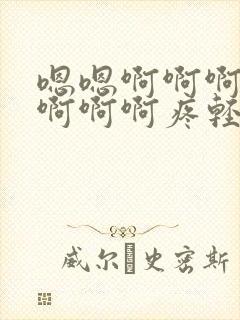 嗯嗯啊啊啊
啊啊啊疼轻
威尔�史密斯